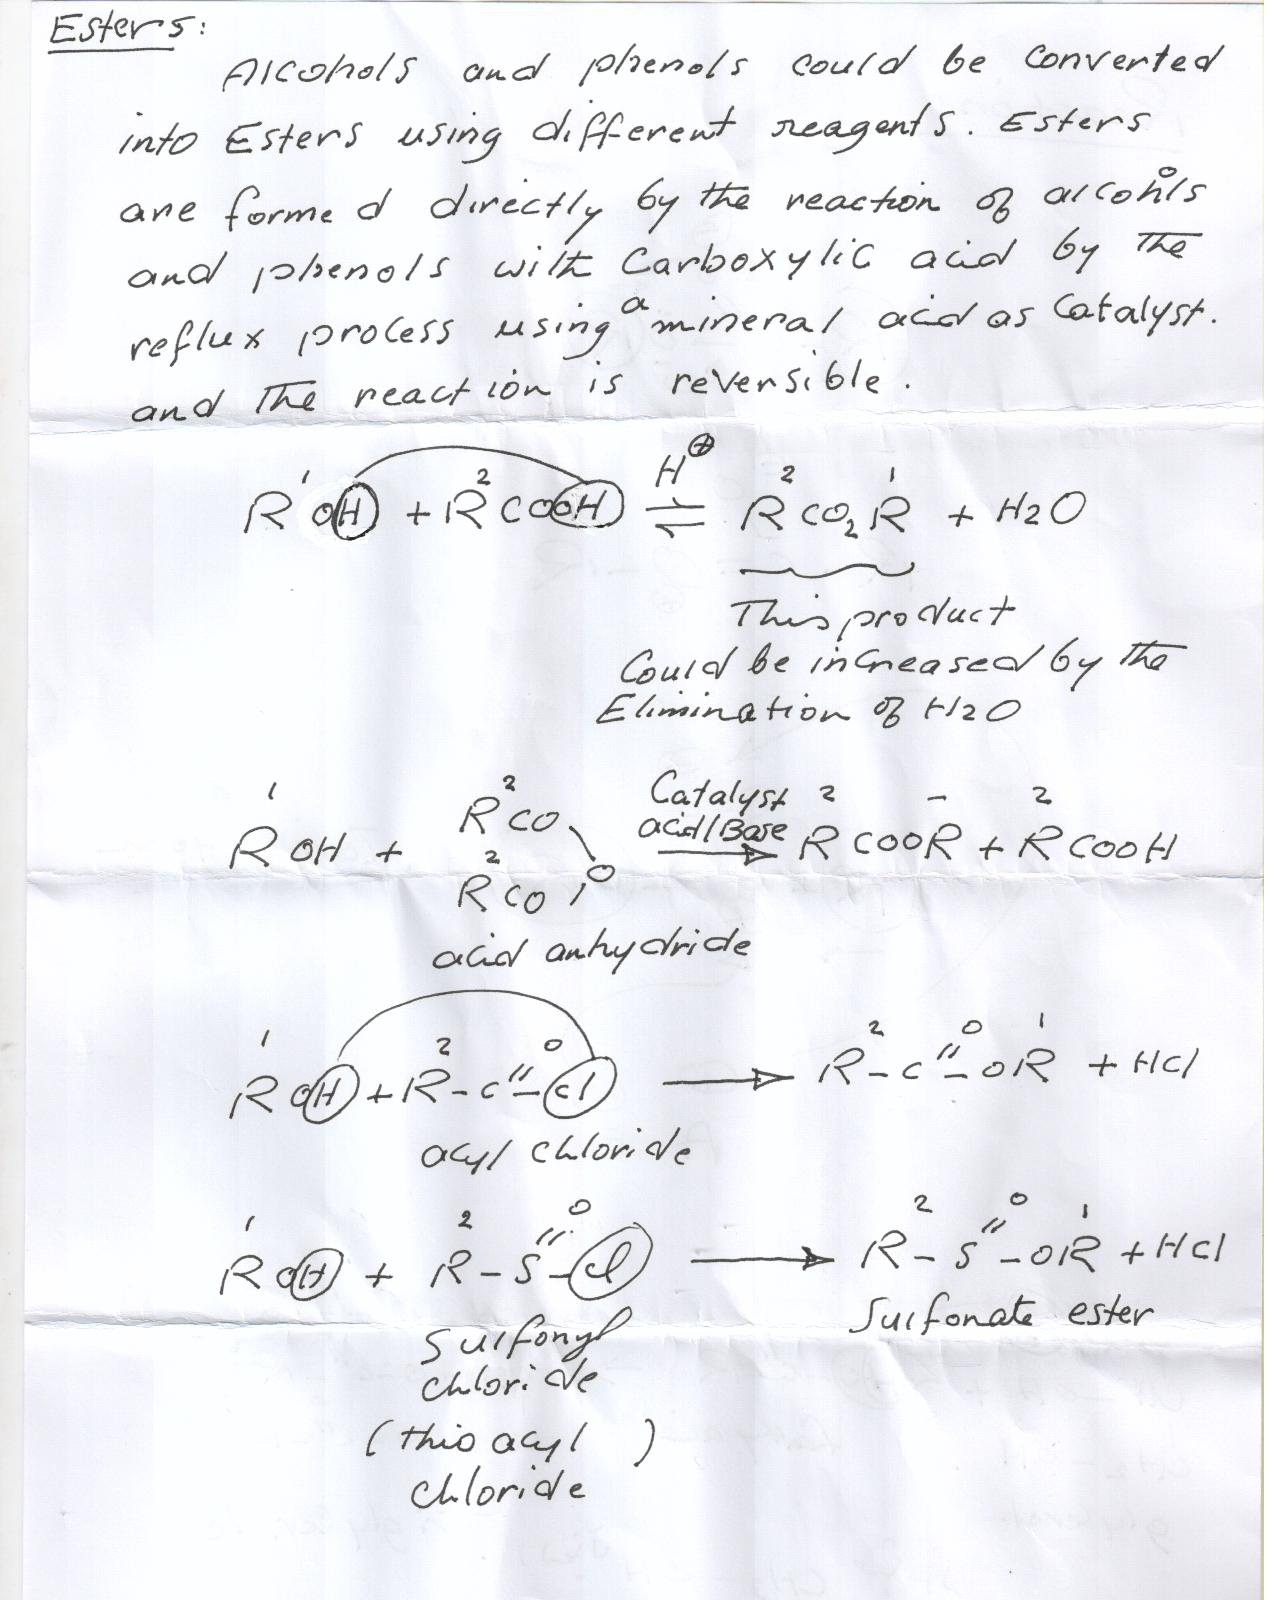 Esters:
Alcohols and phenols could be converted
into Esters using different reagents. Esters
are formed directly by the reaction of alcohols
and phenols with Carboxylic acid by the
reflux process using a mineral acid as Catalyst.
and the reaction is reversible.
R¹OH + R²COOH ⇌ (H⊕) R²CO₂R¹ + H2O
This product
Could be increased by the
Elimination of H2O
R¹OH + R²CO\O/R²CO Catalyst acid/Base → R²COOR⁻ + R²COOH
acid anhydride
R¹OH + R²-C(=O)-Cl → R²-C(=O)-OR¹ + HCl
acyl chloride
R¹OH + R²-S(=O)-Cl → R²-S(=O)-OR¹ + HCl
Sulfonyl chloride
Sulfonate ester
(thioacyl)
chloride